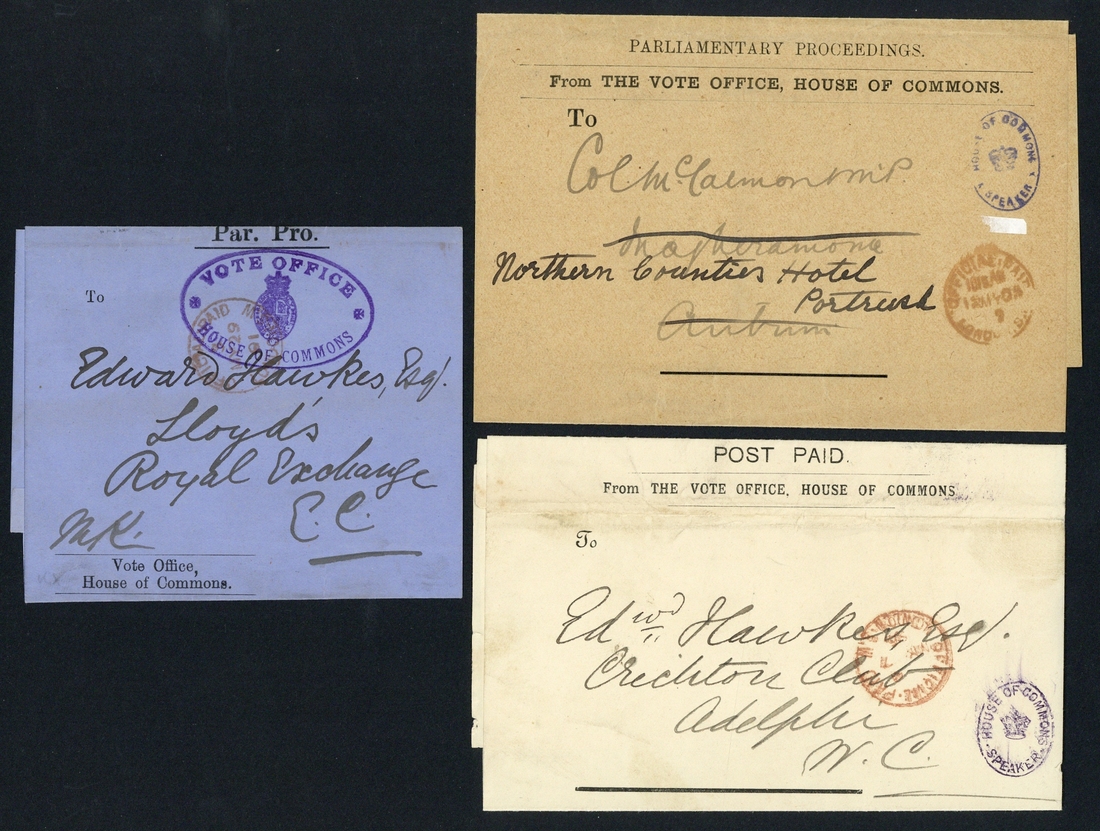 Par. Pro.
VOTE OFFICE
HOUSE OF COMMONS
To
Edward Hawkes, Esqr.
Lloyd's
Royal Exchange
E.C.
MK.
Vote Office,
House of Commons.
PARLIAMENTARY PROCEEDINGS.
From THE VOTE OFFICE, HOUSE OF COMMONS.
To
HOUSE OF COMMONS
SPEAKER
Col. McCalmont M.P.
Magheramorne
Northern Counties Hotel
Portrush
Antrim
OFFICIAL PAID
POST PAID.
From THE VOTE OFFICE, HOUSE OF COMMONS
To
Edwd Hawkes, Esqr.
Crichton Club
Adelphi
W.C.
HOUSE OF COMMONS
SPEAKER